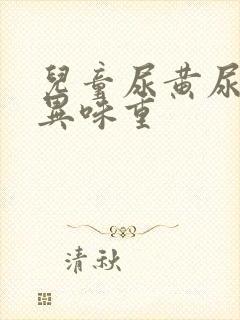 兒童尿黃尿
異味重
清秋